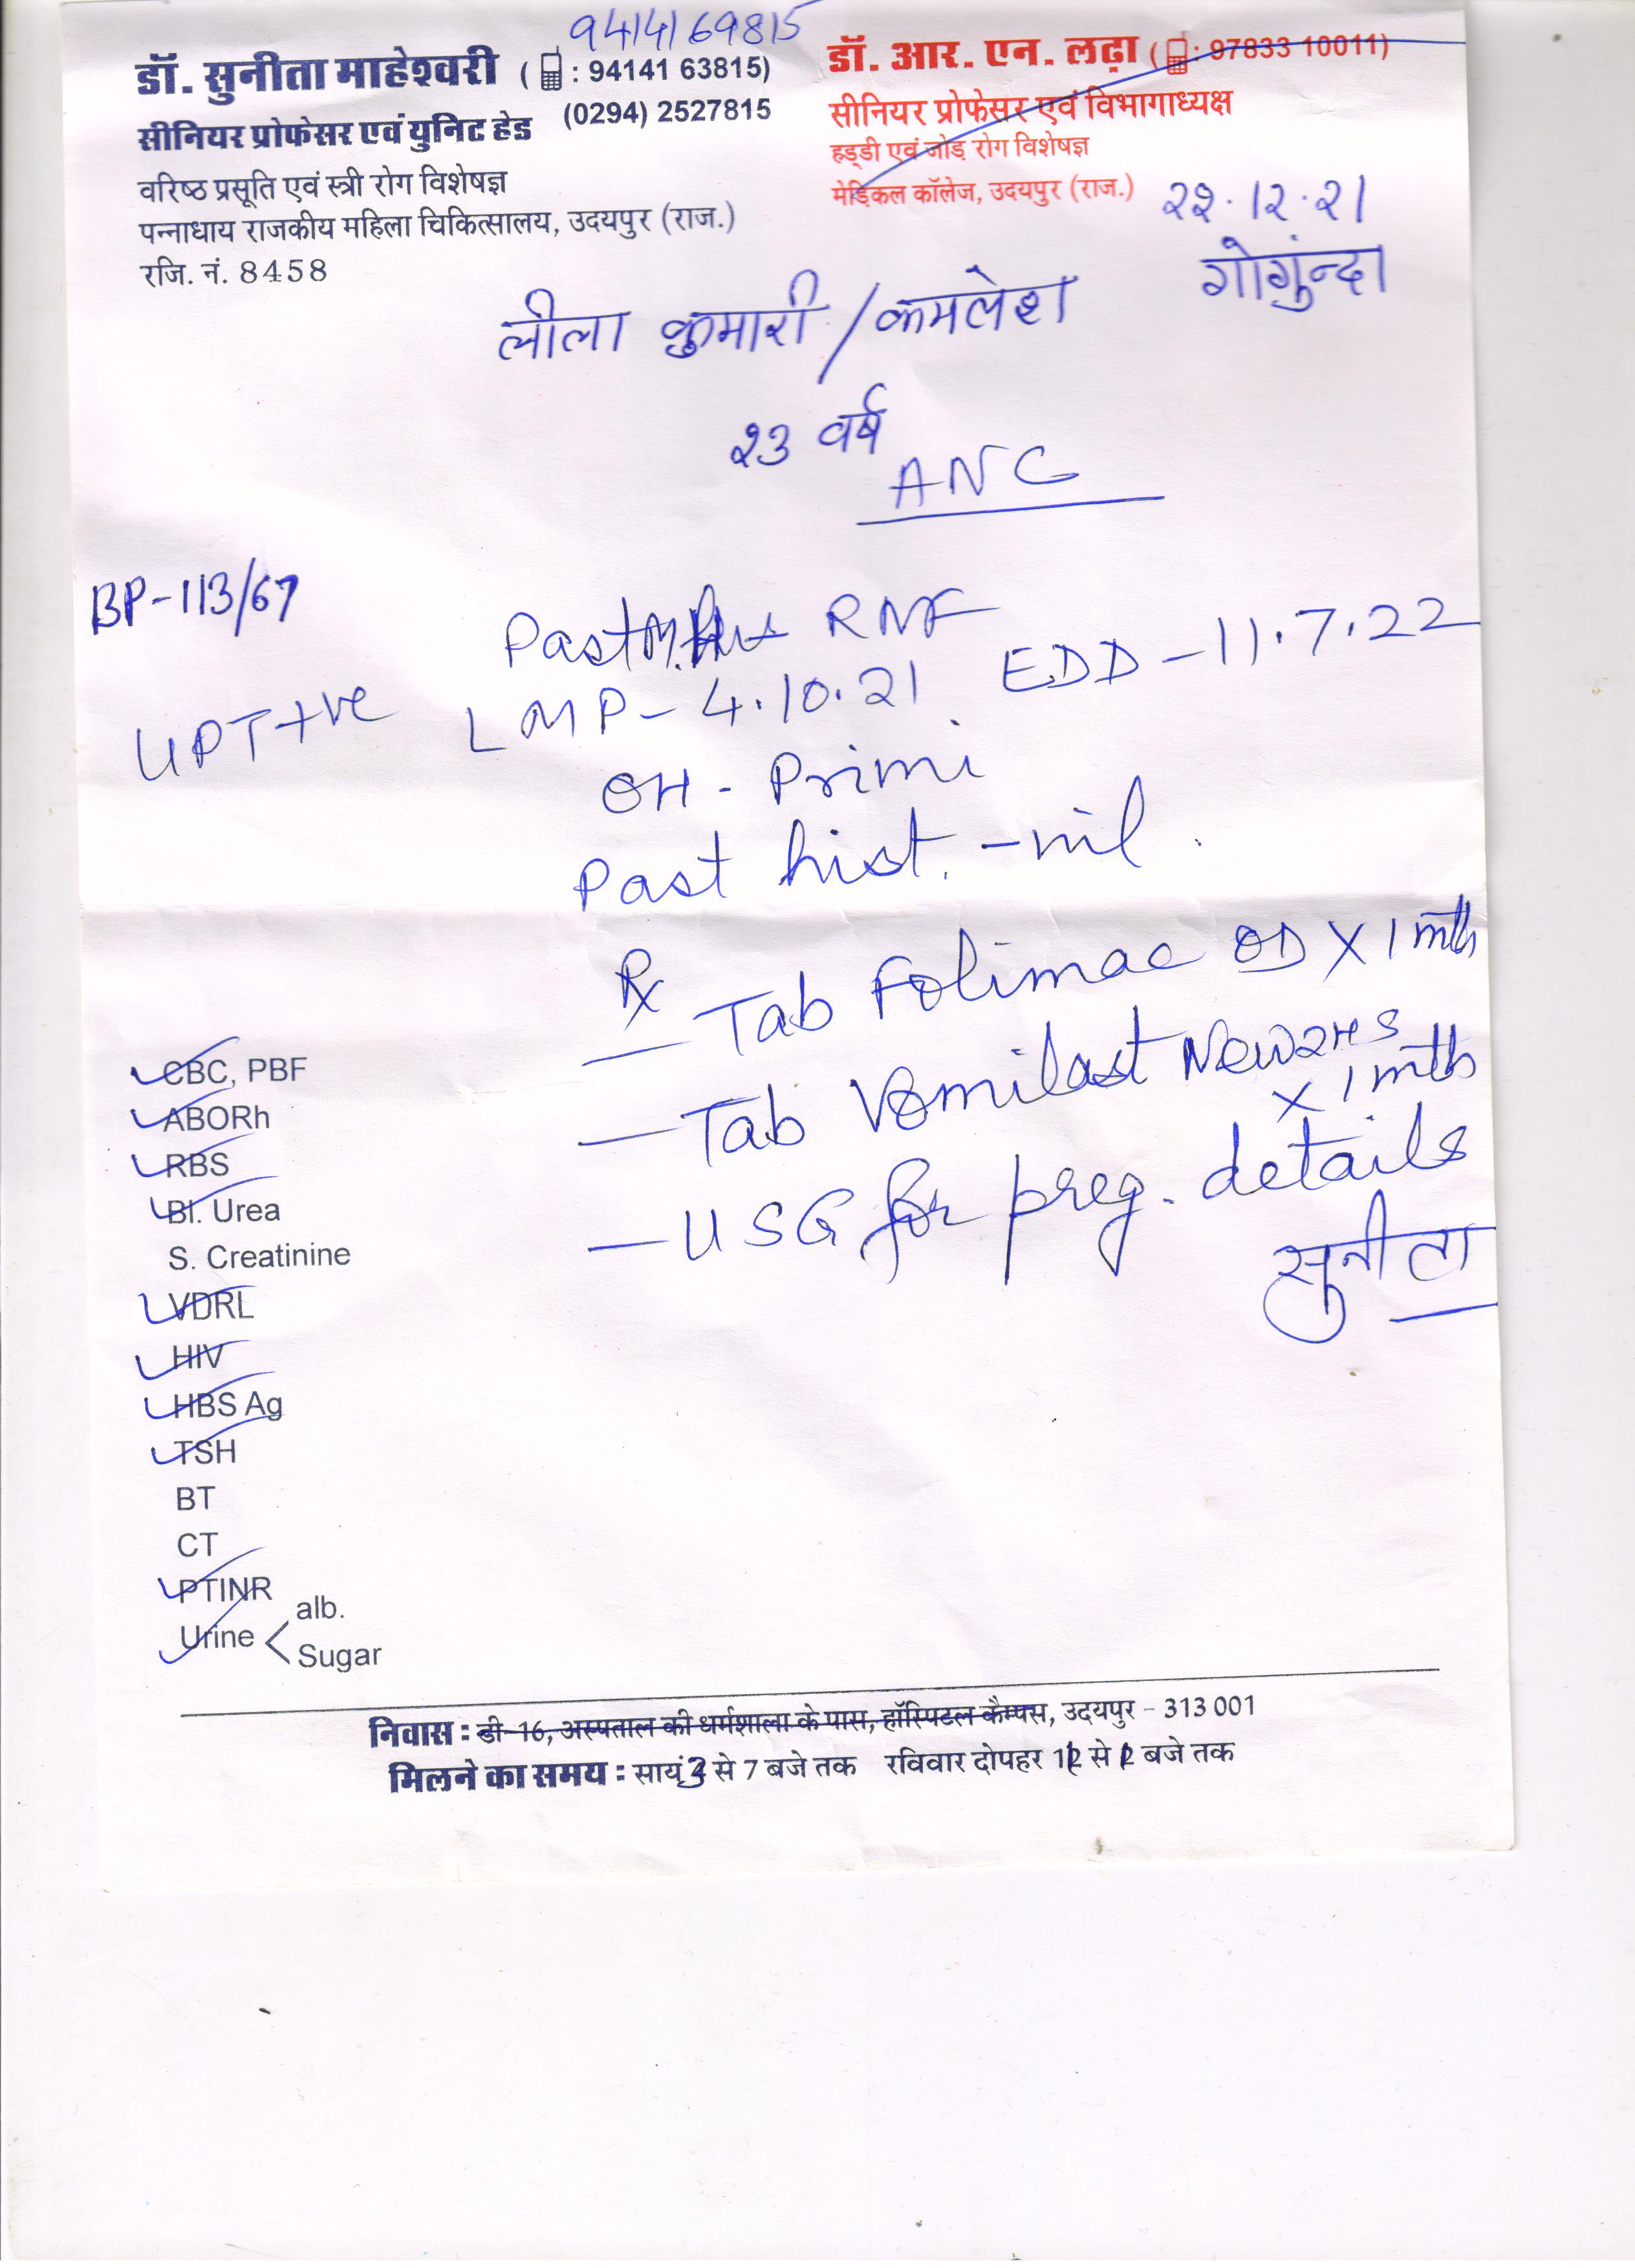 9414169815
डॉ. सुनीता माहेश्वरी ( : 94141 63815)
(0294) 2527815
सीनियर प्रोफेसर एवं युनिट हेड
वरिष्ठ प्रसूति एवं स्त्री रोग विशेषज्ञ
पन्नाधाय राजकीय महिला चिकित्सालय, उदयपुर (राज.)
रजि. नं. 8458
डॉ. आर. एन. लढ़ा ( : 97833 10011)
सीनियर प्रोफेसर एवं विभागाध्यक्ष
हड्डी एवं जोड़ रोग विशेषज्ञ
मेडिकल कॉलेज, उदयपुर (राज.)
12.21
गोगुंन्दा
लीला कुमारी / कमलेश
23 वर्ष
ANC
BP-113/67
Past RMF
UPT+ve LMP- 4.10.21 EDD - 11.7.22
OH - Primi
Past hist. - nil.
Rx
- Tab Folimac OD X 1 mth
- Tab Vomilast New 2HS
X 1 mth
- USG for preg. details
सुनीता
CBC, PBF
ABORh
RBS
Bl. Urea
S. Creatinine
VDRL
HIV
HBS Ag
TSH
BT
CT
PTINR
Urine < alb.
Sugar
निवास : डी-16, अस्पताल की धर्मशाला के पास, हॉस्पिटल कैम्पस, उदयपुर - 313 001
मिलने का समय : सायं 3 से 7 बजे तक रविवार दोपहर 12 से 2 बजे तक